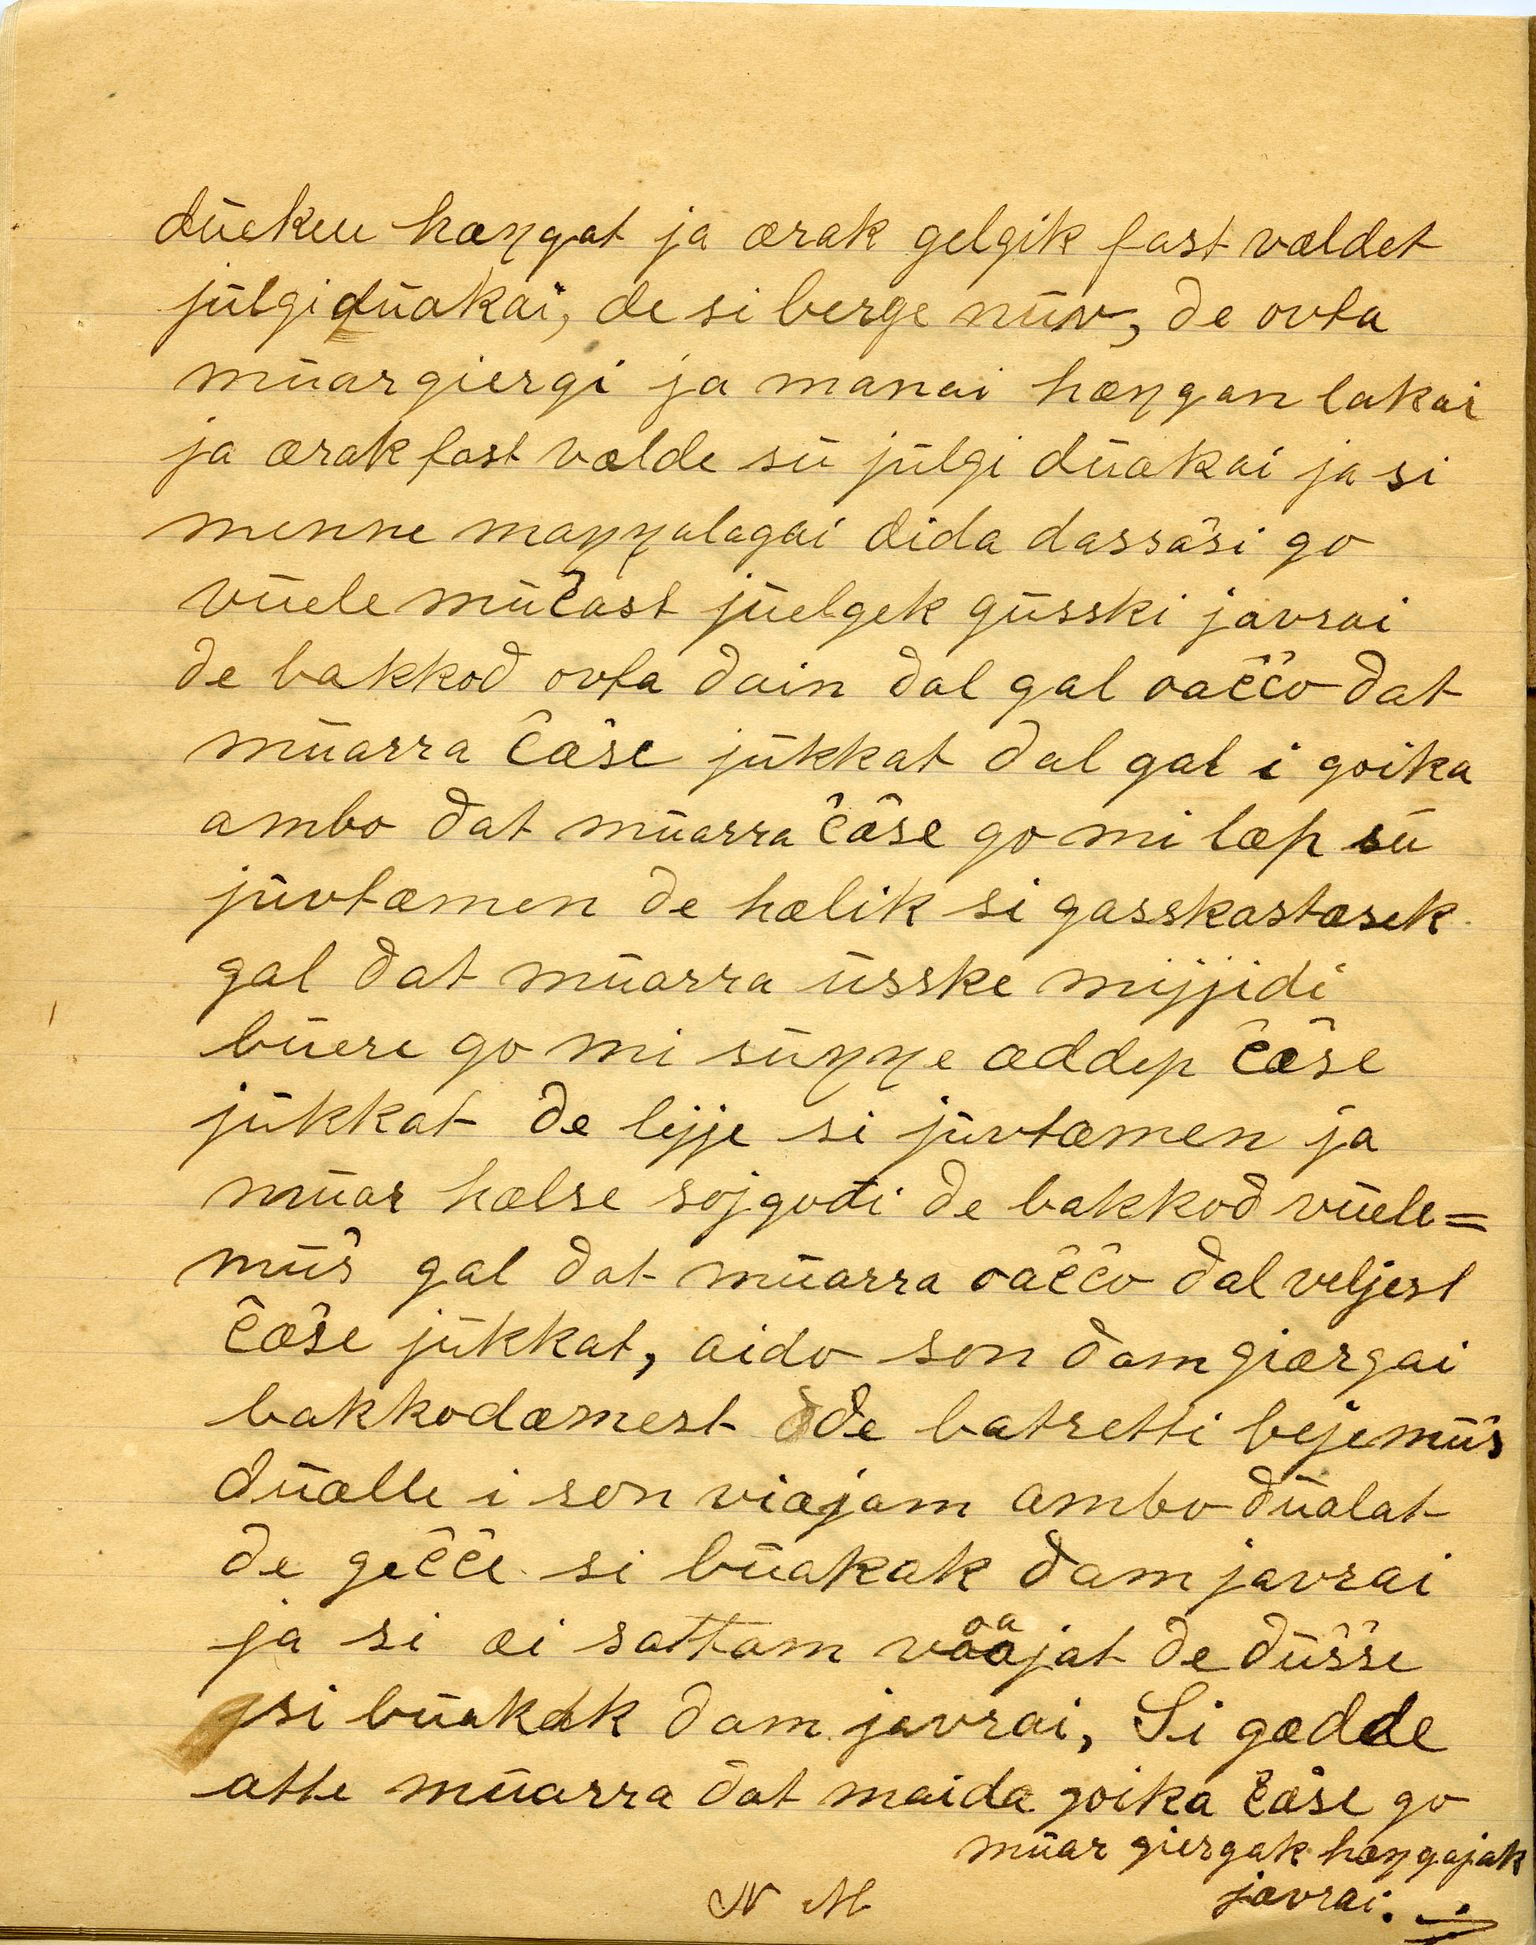 dūekuu hæŋgat ja ærak gelgik fast vældet
jūlgi dūakai, de si berge nūv, de ovta
mūorgiergi ja manai hæŋgan lakai
ja ærak fast vælde sū jūlgi dūakai ja si
menne maŋŋalagai dida dassāši go
vūele mūčast jūelgek gūsski javrai
de bakkod ovta dain dal gal oaččo dat
mūorra čāše jūkkat dal gal i goika
ambo dat mūorra čāše go mi læp sū
jūvtæmen de hælik si gasskastæsek
gal dat mūorra ūsske mijjidi
būere go mi sūŋŋe æddep čāše
jūkkat de lejje si jūvtæmen ja
mūor hælse sojgođi de bakkod vūele=
mūš gal dat mūorra oaččo dal veljest
čāše jūkkat, aido son dam giærgai
bakkodæmest de batsetti bejemūš
dūolle i son viæjam ambo dūolat
de gečče si būakak dam javrai
ja si æi sattam vååjat de dūšše
si būakak dam javrai, Si gædde
atte mūorra dat maida goika čāše go
mūor giergak hæŋgajak
javrai.
N M